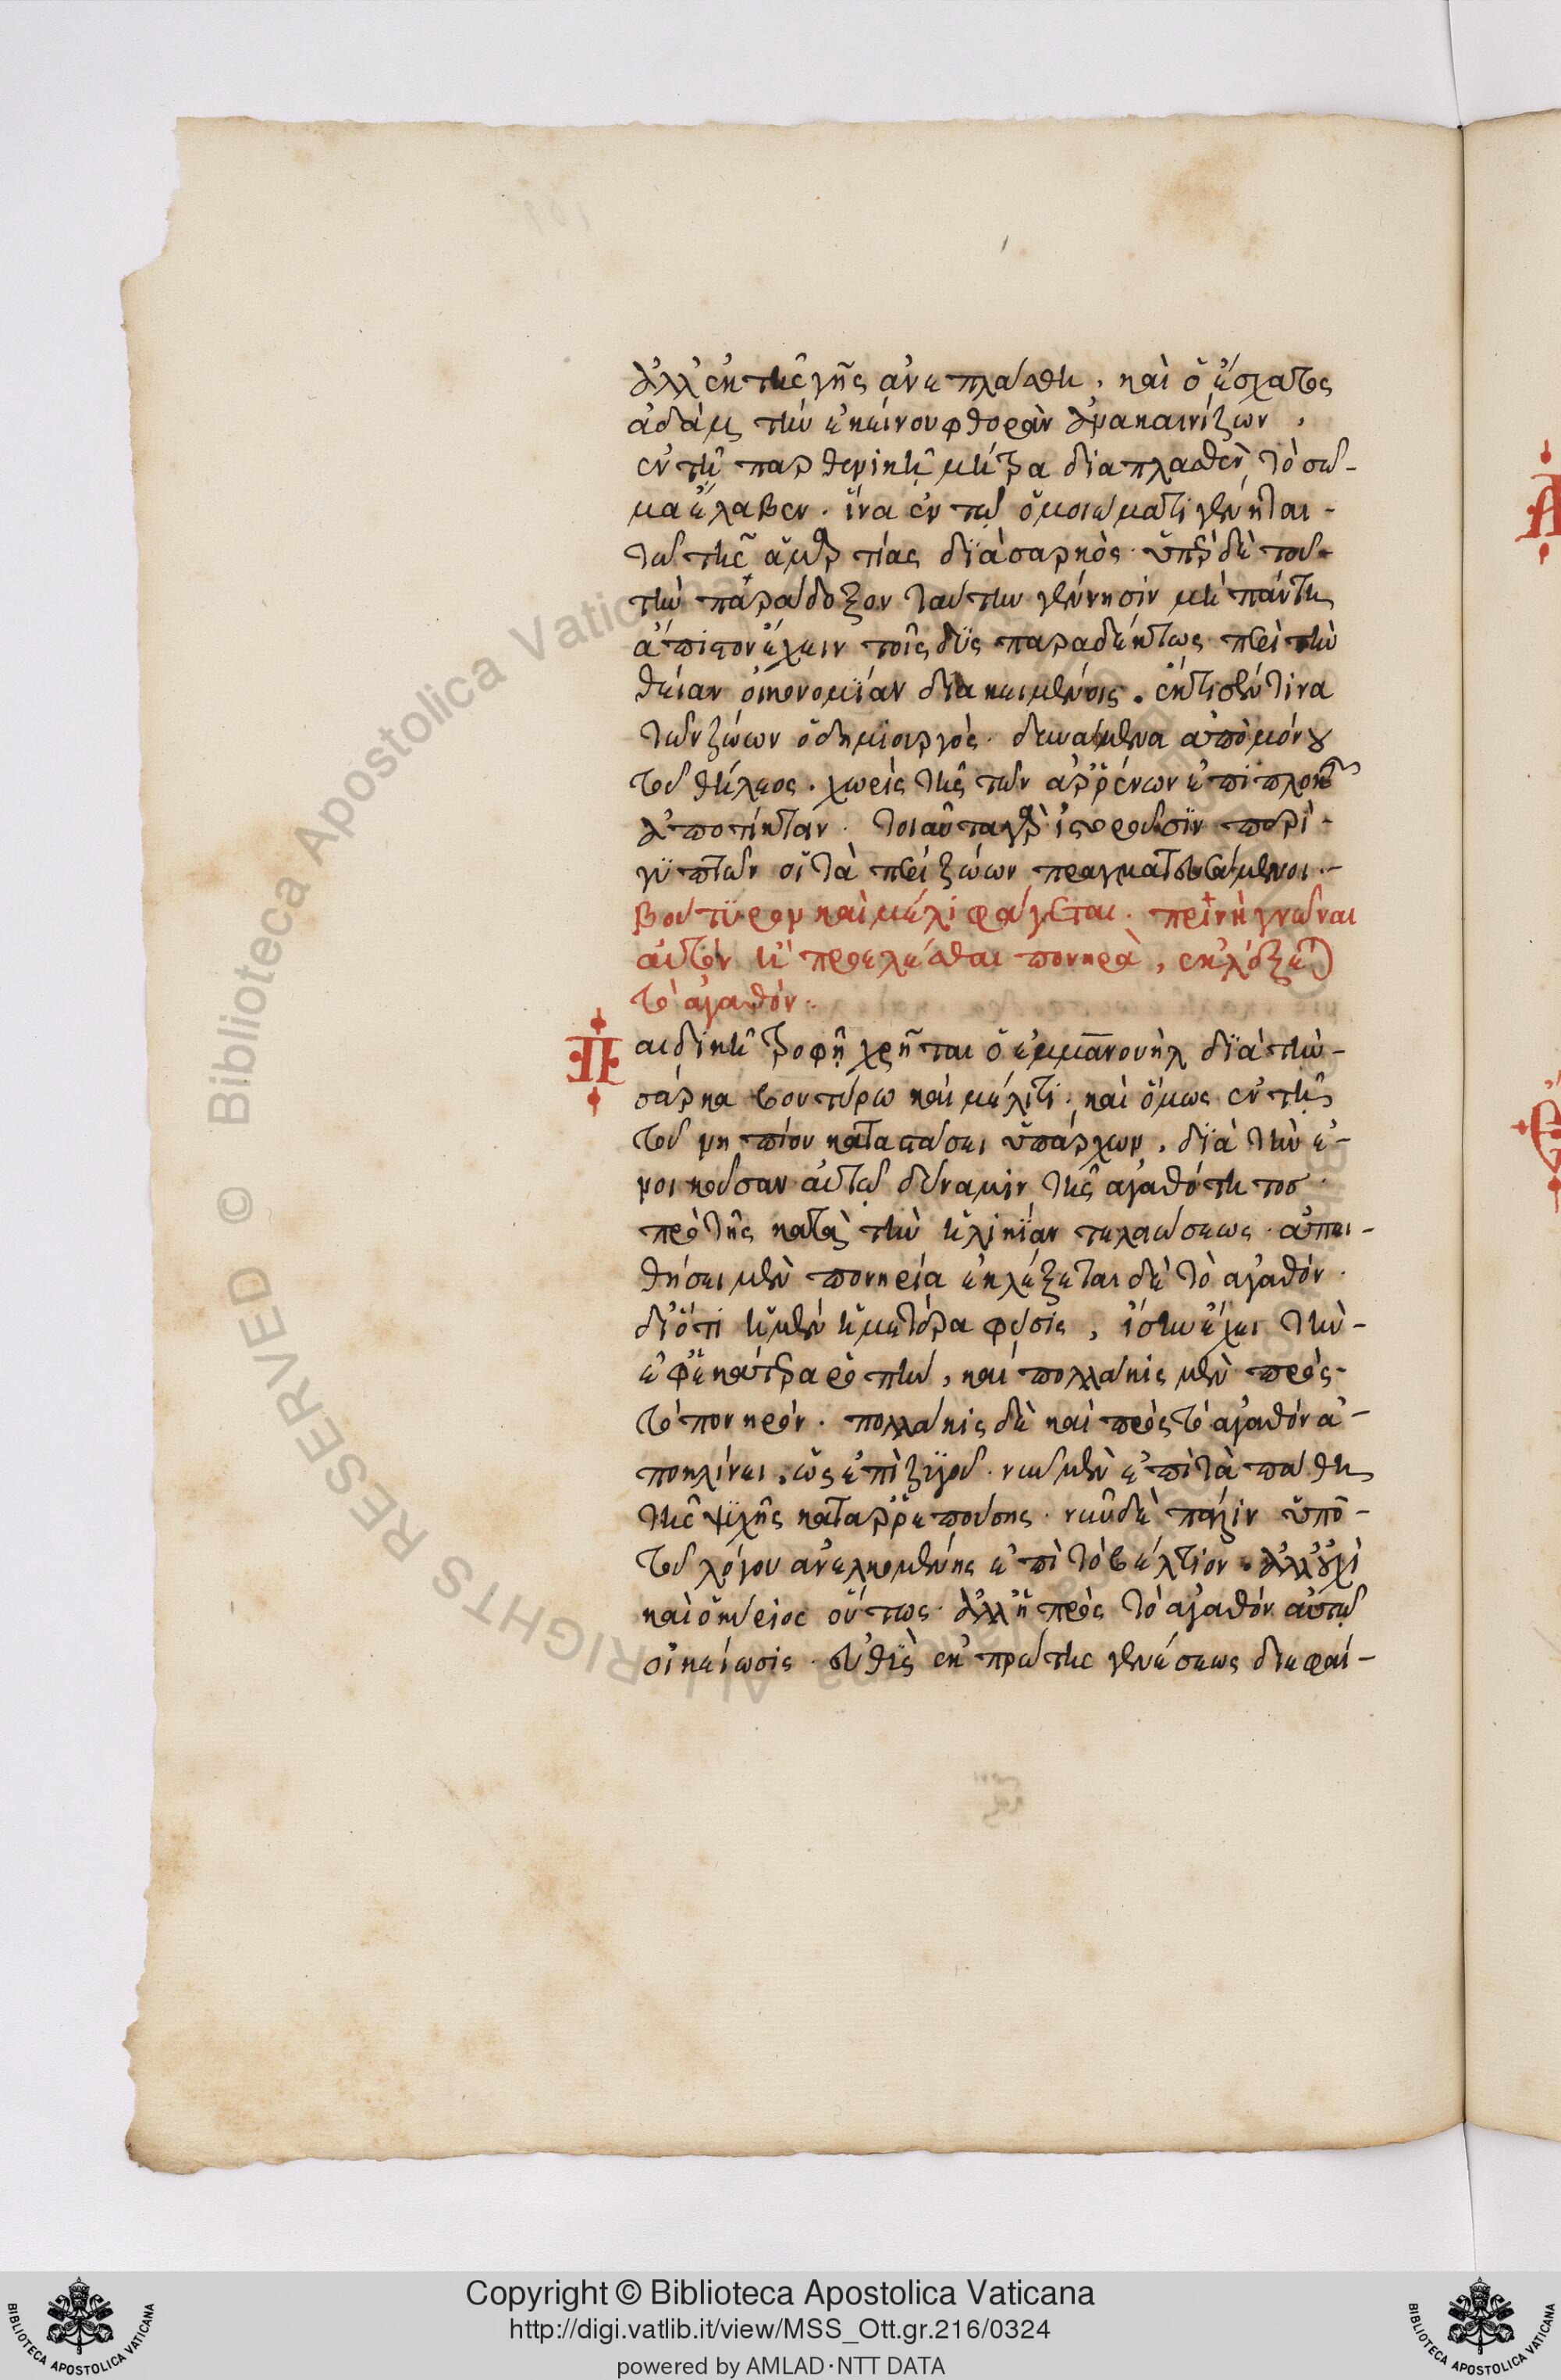 ἀλλ' ἐκ τῆς γῆς ἀνεπλάσθη, καὶ ὁ ἔσχατος
ἀδὰμ τὴν ἐκείνου φθορὰν ἀνακαινίζων,
ἐν τῇ παρθενικῇ μήτρα διαπλασθὲν τὸ σῶ-
μα ἔλαβεν. ἵνα ἐν τῷ ὁμοιώματι γένηται-
τῶ τῆς ἁμαρτίας διὰ σαρκὸς. ὑπὲρ δὲ τοῦ-
τὴν παράδοξον ταύτην γέννησιν μὴ πάντη
ἄπιστον ἔχειν τοῖς δυσπαραδέκτως περὶ τὴν
θείαν οἰκονομίαν διακειμένοις. ἔκτισέν τινα
τῶν ζώων ὁ δημιουργός. δυνάμενα ἀπὸ μόνου
τοῦ θήλεος. χωρὶς τῆς τῶν ἀῤῥένων ἐπιπλοκῆς
ἀποτίκταν. τοιαῦτα γὰρ ἱστοροῦσιν περὶ-
γυπῶν οἱ τὰ περὶ ζώων πραγματευσάμενοι.-
βούτυρον καὶ μέλι φάγεται. πρινὴ γνῶναι
αὐτὸν ἢ προελέσθαι πονηρὰ, ἐκλέξεται
τὸ ἀγαθόν.
Παιδικῆ τροφῇ χρῆται ὁ ἐμμανουὴλ διὰ τὴν-
σάρκα βουτύρω καὶ μέλιτι. καὶ ὅμως ἐν τῇ
τοῦ νηπίου καταστάσει ὑπάρχων, διὰ τὴν ἐ-
νοικοῦσαν αὐτῷ δύναμιν τῆς ἀγαθότητος.
πρὸ τῆς κατὰ τὴν ἡλικίαν τελαιώσεως. ἀπει-
θήσει μὲν πονηρία ἐκλέξεται δὲ τὸ ἀγαθόν.
διότι ἡ μὲν ἡμετέρα φύσις, ἴσην ἔχει τὴν-
ἐφ' ἑκάτερα ῥοπὴν, καὶ πολλάκις μὲν πρὸς-
τὸ πονηρόν. πολλάκις δὲ καὶ πρὸς τὸ ἀγαθόν ἀ-
ποκλίνει, ὡς ἐπὶ ζυγοῦ. νῦν μὲν ἐπὶ τὰ πάθη
τῆς ψυχῆς καταῤῥεπούσης. νῦν δὲ πάλιν ὑπὸ-
τοῦ λόγου ἀνελκομένης ἐπὶ τὸ βέλτιον. ἀλλ' οὐχὶ
καὶ ὁ κύριος οὕτως. ἀλλ' ἡ πρὸς τὸ ἀγαθόν αὐτῷ
οἰκείωσις. εὐθὺς ἐκ πρώτης γενέσεως διεφαί-
Copyright © Biblioteca Apostolica Vaticana
http://digi.vatlib.it/view/MSS_Ott.gr.216/0324
powered by AMLAD·NTT DATA
BIBLIOTECA APOSTOLICA VATICANA
BIBLIOTECA APOSTOLICA VATICANA